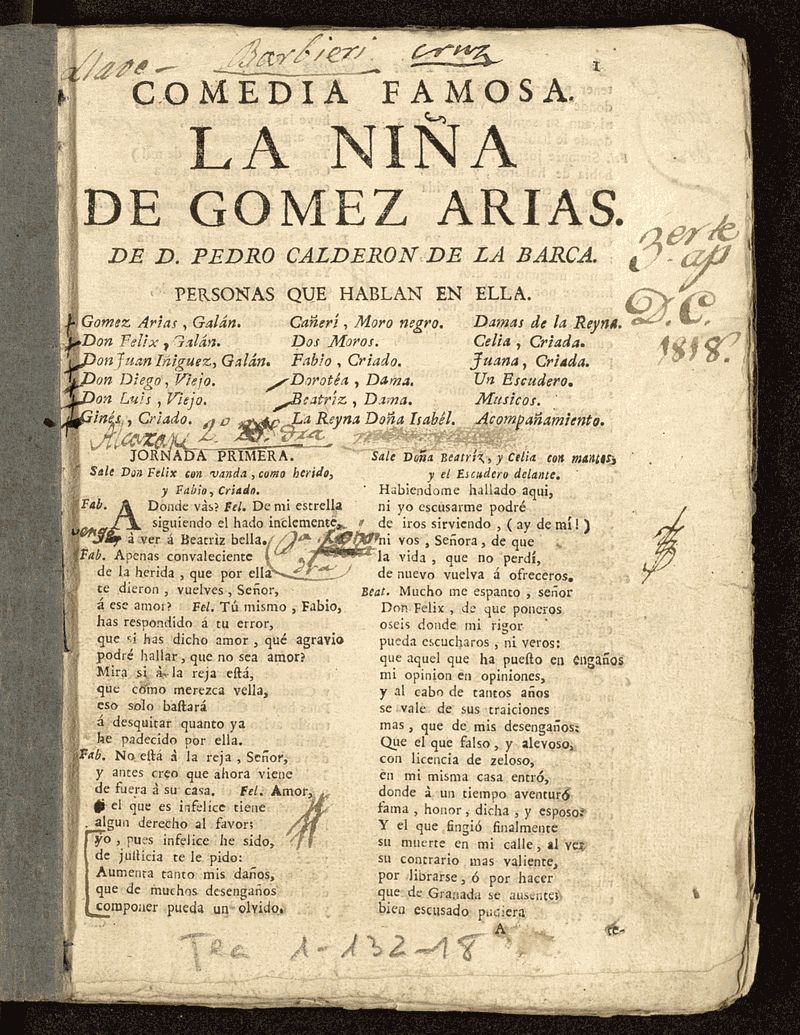 llave - Barbieri cruz
1
COMEDIA FAMOSA.
LA NIÑA
DE GOMEZ ARIAS.
DE D. PEDRO CALDERON DE LA BARCA.
3
D. C.
1818.
PERSONAS QUE HABLAN EN ELLA.
Gomez Arias, Galán. Cañerí, Moro negro. Damas de la Reyna.
Don Felix, Galán. Dos Moros. Celia, Criada.
Don Juan Iñiguez, Galán. Fabio, Criado. Juana, Criada.
Don Diego, Viejo. Dorotéa, Dama. Un Escudero.
Don Luis, Viejo. Beatriz, Dama. Musicos.
Ginés, Criado. La Reyna Doña Isabél. Acompañamiento.
JORNADA PRIMERA.
Sale Don Felix con vanda, como herido,
y Fabio, Criado.
Fab. ADonde vàs? Fel. De mi estrella
siguiendo el hado inclemente,
à ver á Beatriz bella.
Fab. Apenas convaleciente
de la herida, que por ella
te dieron, vuelves, Señor,
á ese amor? Fel. Tú mismo, Fabio,
has respondido á tu error,
que si has dicho amor, qué agravio
podré hallar, que no sea amor?
Mira si à la reja está,
que como merezca vella,
eso solo bastará
á desquitar quanto ya
he padecido por ella.
Fab. No está à la reja, Señor,
y antes creo que ahora viene
de fuera à su casa. Fel. Amor,
si el que es infelice tiene
algun derecho al favor;
yo, pues infelice he sido,
de justicia te le pido:
Aumenta tanto mis daños,
que de muchos desengaños
componer pueda un olvido.
Sale Doña Beatriz, y Celia con mantos,
y el Escudero delante.
Habiendome hallado aqui,
ni yo escusarme podré
de iros sirviendo, (ay de mí!)
ni vos, Señora, de que
la vida, que no perdí,
de nuevo vuelva á ofreceros.
Beat. Mucho me espanto, señor
Don Felix, de que poneros
oseis donde mi rigor
pueda escucharos, ni veros:
que aquel que ha puesto en engaños
mi opinion en opiniones,
y al cabo de tantos años
se vale de sus traiciones
mas, que de mis desengaños:
Que el que falso, y alevoso,
con licencia de zeloso,
en mi misma casa entró,
donde à un tiempo aventuró
fama, honor, dicha, y esposo:
Y el que fingió finalmente
su muerte en mi calle, al vez
su contrario mas valiente,
por librarse, ó por hacer
que de Granada se ausente:
bien escusado pudiera
A te-
Tea 1-132-18